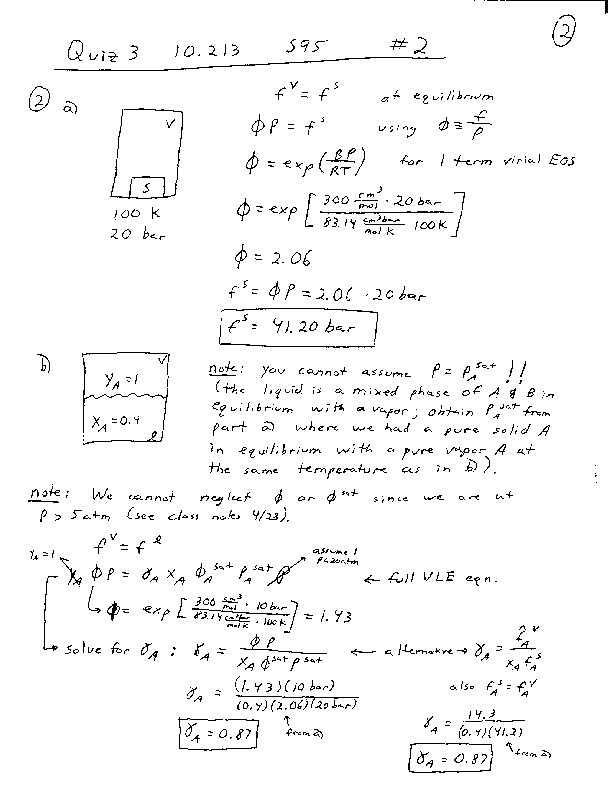 ②
Quiz 3 10.213 S95 #2
② a)
V
S
100 K
20 bar
f^V = f^S at equilibrium
ϕP = f^S using ϕ ≡ f/P
ϕ = exp(BP/RT) for 1 term virial EOS
ϕ = exp [ 300 cm³/mol · 20 bar / 83.14 cm³bar/mol K 100K ]
ϕ = 2.06
f^S = ϕP = 2.06 · 20 bar
f^S = 41.20 bar
b)
V
Y_A = 1
X_A = 0.4
l
note: you cannot assume P = P_A^sat !!
(the liquid is a mixed phase of A & B in
equilibrium with a vapor; obtain P_A^sat from
part a) where we had a pure solid A
in equilibrium with a pure vapor A at
the same temperature as in b)).
note: We cannot neglect ϕ or ϕ^sat since we are at
P > 5 atm (see class notes 4/23).
f^V = f^l
Y_A=1
assume 1
P<20atm
Y_A ϕP = γ_A X_A ϕ_A^sat P_A^sat ← full VLE eqn.
ϕ = exp [ 300 cm³/mol · 10 bar / 83.14 cm³bar/mol K · 100K ] = 1.43
solve for γ_A : γ_A = ϕP / X_A ϕ^sat P^sat ← alternative → γ_A = f̂_A^V / X_A f_A^S
γ_A = (1.43)(10 bar) / (0.4)(2.06)(20 bar)
also f_A^S = f_A^V
from a)
γ_A = 14.3 / (0.4)(41.2)
from a)
γ_A = 0.87
γ_A = 0.87